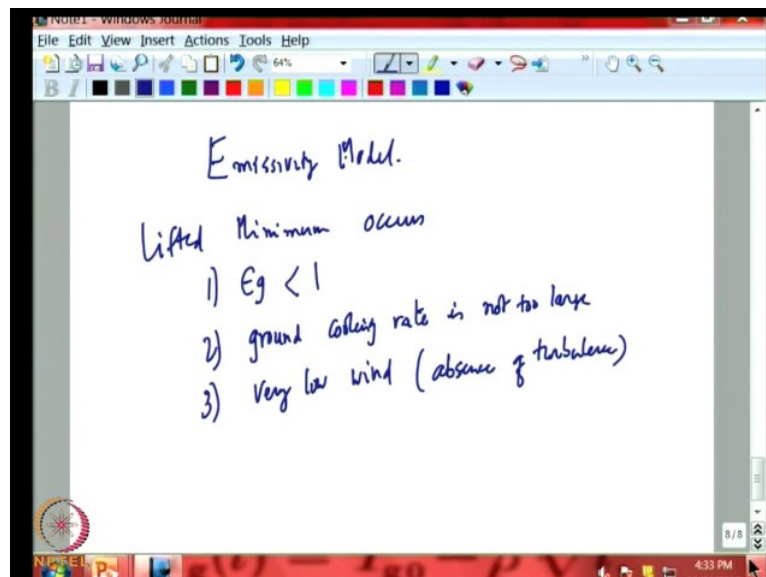 Note1 - Windows Journal
File Edit View Insert Actions Tools Help
64%
B I
Emissivity Model.
Lifted Minimum occurs
1) Eg < 1
2) ground cooling rate is not too large
3) Very low wind (absence of turbulence)
8/8
NPTEL
4:33 PM